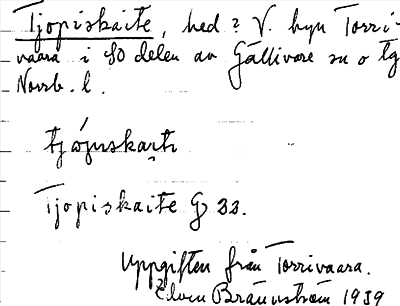 Tjopiskaite, hed? V. hyn Torri-
vaara i SO delen av Gällivare sn o tg
Norrb. l.
Tjopiskaite G 33.
Uppgiften från Torrivaara.
Elven Brännström 1939